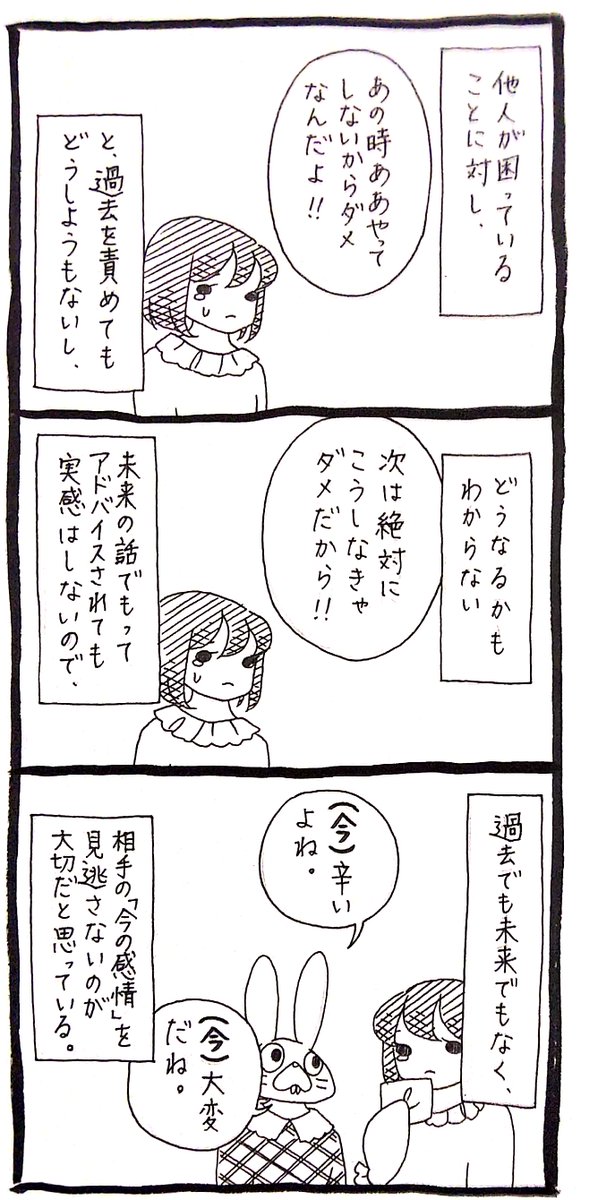 他人が困っている
ことに対し、
あの時ああやって
しないからダメ
なんだよ!!
と、過去を責めても
どうしようもないし、
どうなるかも
わからない
次は絶対に
こうしなきゃ
ダメだから!!
未来の話でもって
アドバイスされても
実感はしないので、
過去でも未来でもなく、
(今)辛い
よね。
(今)大変
だね。
相手の「今の感情」を
見逃さないのが
大切だと思っている。